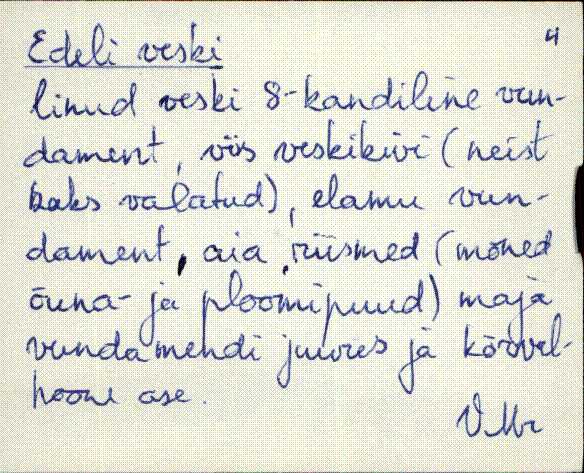 Edeli veski 4
linud veski 8-kandiline vun-
dament, viis veskikivi (neist
kaks valatud), elamu vun-
dament, aia riismed (mõned
õuna- ja ploomipuud) maja
vundamendi juures ja kõrvel-
hoone ase.